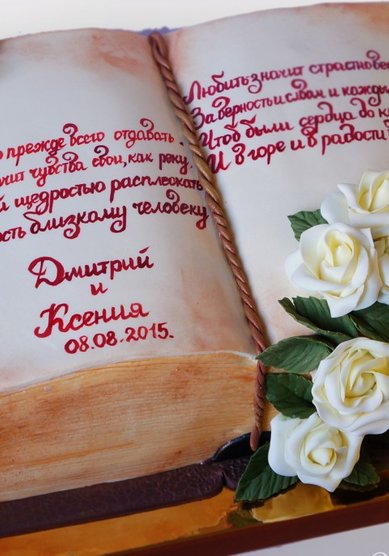 прежде всего отдавать.
чувства свои, как реку,
щедростью расплескать
близкому человеку
Дмитрий
и
Ксения
08.08.2015.
Любить значит
За верность и слом и
Чтоб были сердца до
И в горе и в радости